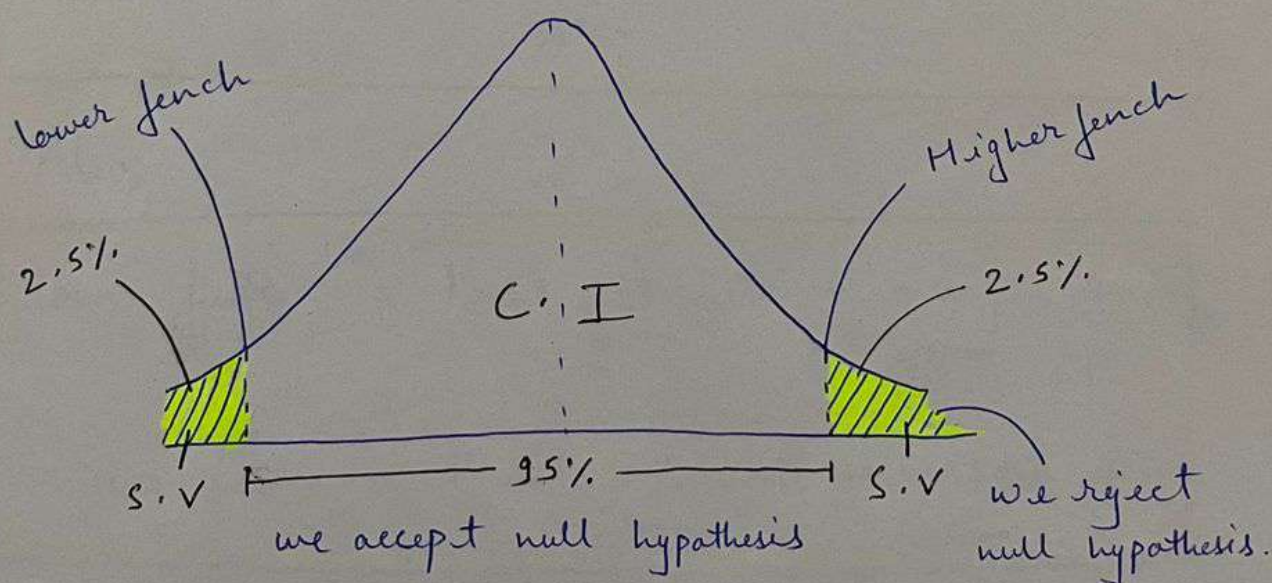 lower fench
Higher fench
2.5%.
2.5%.
C.I
S.V
95%.
S.V
we accept null hypothesis
we reject
null hypothesis.